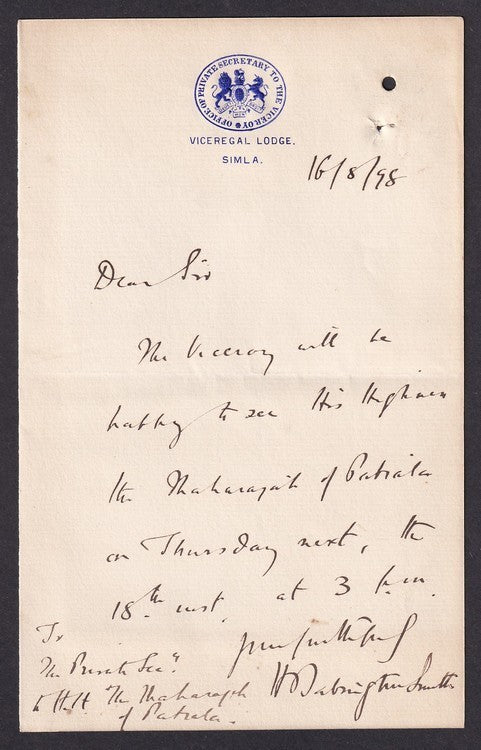 OFFICE OF PRIVATE SECRETARY TO THE VICEROY
VICEREGAL LODGE.
SIMLA.
16/8/98
Dear Sir
The Viceroy will be
happy to see His Highness
the Maharajah of Patiala
on Thursday next, the
18th inst. at 3 p.m.
Yours faithfully
H Babington Smith
To
The Private Secy.
to H.H. The Maharajah
of Patiala.